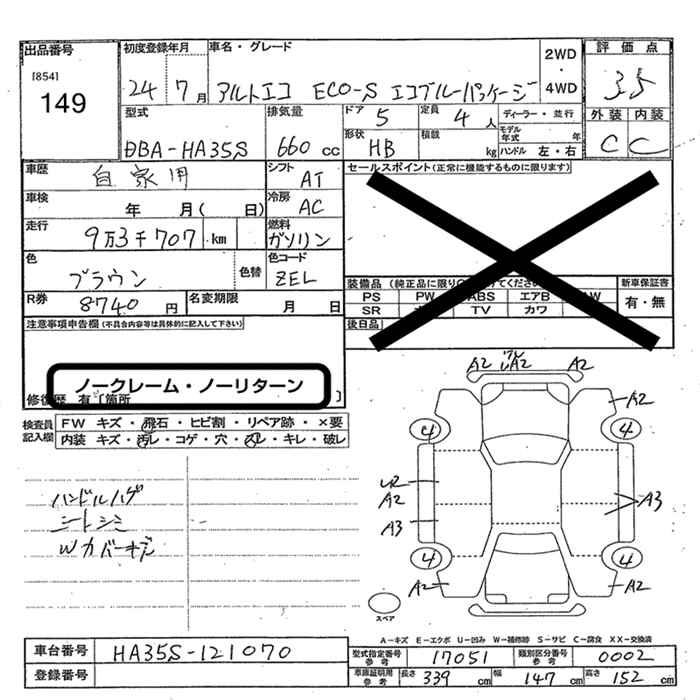 出品番号
[854]
149
初度登録年月
24年7月
車名・グレード
アルトエコ ECO-S エコブルーパッケージ
2WD
・
4WD
評価点
3.5
外装 内装
C C
型式
DBA-HA35S
排気量
660 cc
ドア 5
形状 HB
定員 4人
積載 kg
ディーラー・並行
モデル年式 年
ハンドル 左・右
車歴 自家用
シフト AT
車検 年 月( 日)
冷房 AC
走行 9万3千707 km
燃料 ガソリン
色 ブラウン
色替
色コード ZEL
R券 8740 円
名変期限 月 日
注意事項申告欄(不具合内容等は具体的に記入して下さい)
ノークレーム・ノーリターン
修復歴 有〔箇所 〕
セールスポイント(正常に機能するものに限ります)
装備品
PS PW ABS エアB
SR TV カワ
後日品
新車保証書
有・無
検査員記入欄
FW キズ・飛石・ヒビ割・リペア跡・×要
内装 キズ・汚レ・コゲ・穴・スレ・キレ・破レ
ハンドルハゲ
シートシミ
Wカバーキズ
A2 A2 A2
A2
4 4
A2
A3
A3
4 4
A2 A2
スペア
A-キズ E-エクボ U-凹み W-補修跡 S-サビ C-腐食 XX-交換済
車台番号 HA35S-121070
登録番号
型式指定番号参考 17051
類別区分番号参考 0002
車庫証明用参考 長さ 339 cm 幅 147 cm 高さ 152 cm